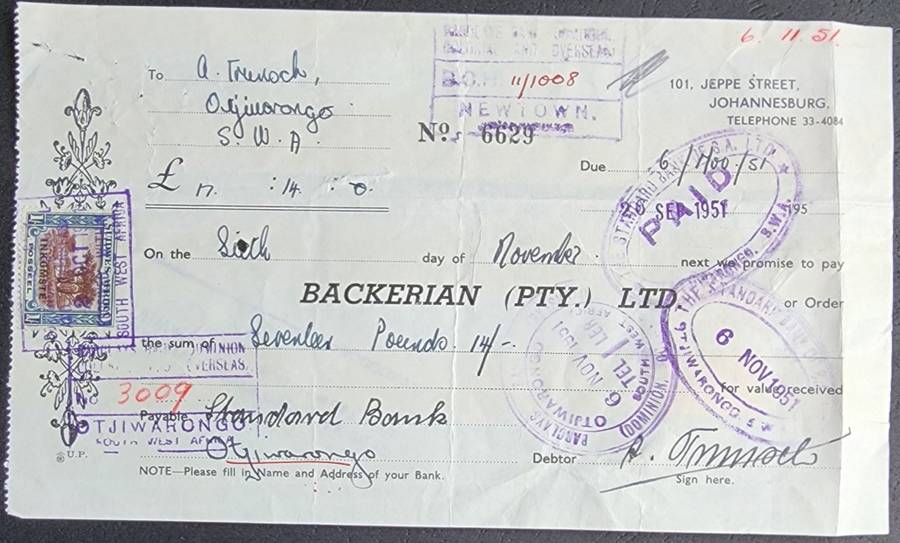 6. 11. 51.
BARCLAYS BANK (DOMINION,
COLONIAL AND OVERSEAS)
B.O.H. 11/1008
NEWTOWN.
To A. Trensch,
Otjiwarongo
S. W. A
101, JEPPE STREET,
JOHANNESBURG,
TELEPHONE 33-4084
No. 6629
Due 6/Nov/51
£ 17. : 14. : 0.
26 SEP 1951 195
STANDARD BANK OF S.A. LTD.
PAID
OTJIWARONGO. S.W.A.
On the Sixth day of November next we promise to pay
BACKERIAN (PTY.) LTD. or Order
SOUTH WEST AFRICA
SUIDWES-AFRIKA
INKOMSTE
POSSEEL
the sum of Seventeen Pounds. 14/-.
for value received
THE STANDARD BANK
6 NOV 1951
OTJIWARONGO
BARCLAYS BANK (DOMINION,
OTJIWARONGO
SOUTH WEST AFRICA
TELLER
6 NOV 1951
BARCLAYS BANK DOMINION
OVERSEAS.
3009
OTJIWARONGO
SOUTH WEST AFRICA
Payable Standard Bank
Otjiwarongo
® U.P.
Debtor
Sign here.
NOTE—Please fill in Name and Address of your Bank.